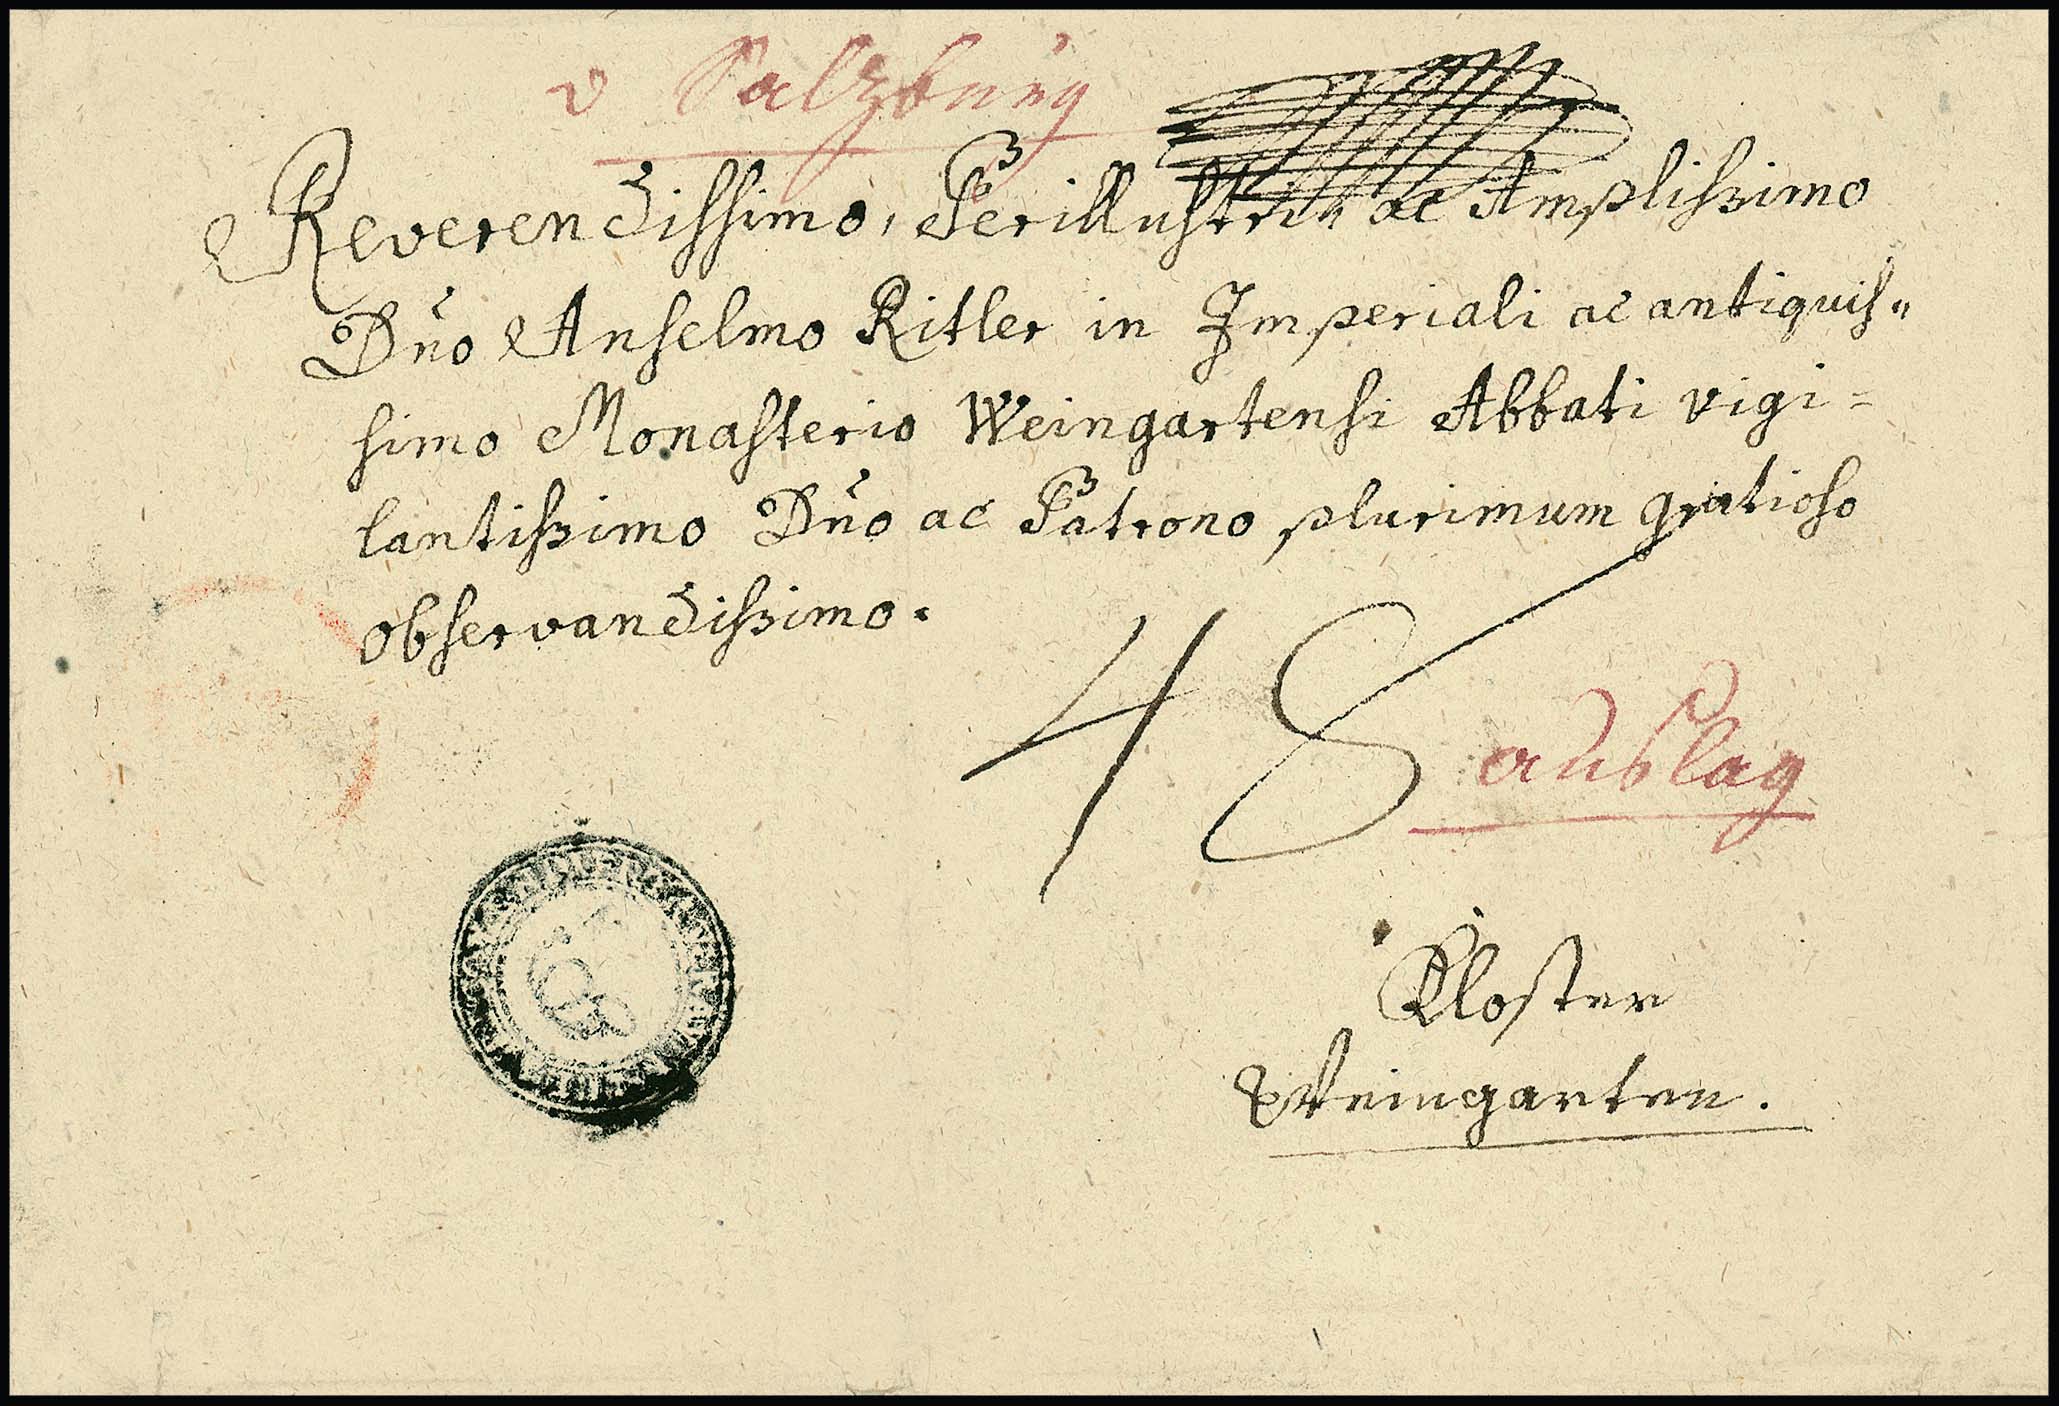 v Salzburg
Reverendissimo, Perillustri ac Amplissimo
Dño Anselmo Ritler in Imperiali ac antiquis„
simo Monasterio Weingartensi Abbati vigi=
lantissimo Dño ac Patrono plurimum gratioso
observandissimo.
48
auslag
Kloster
Weingarten.